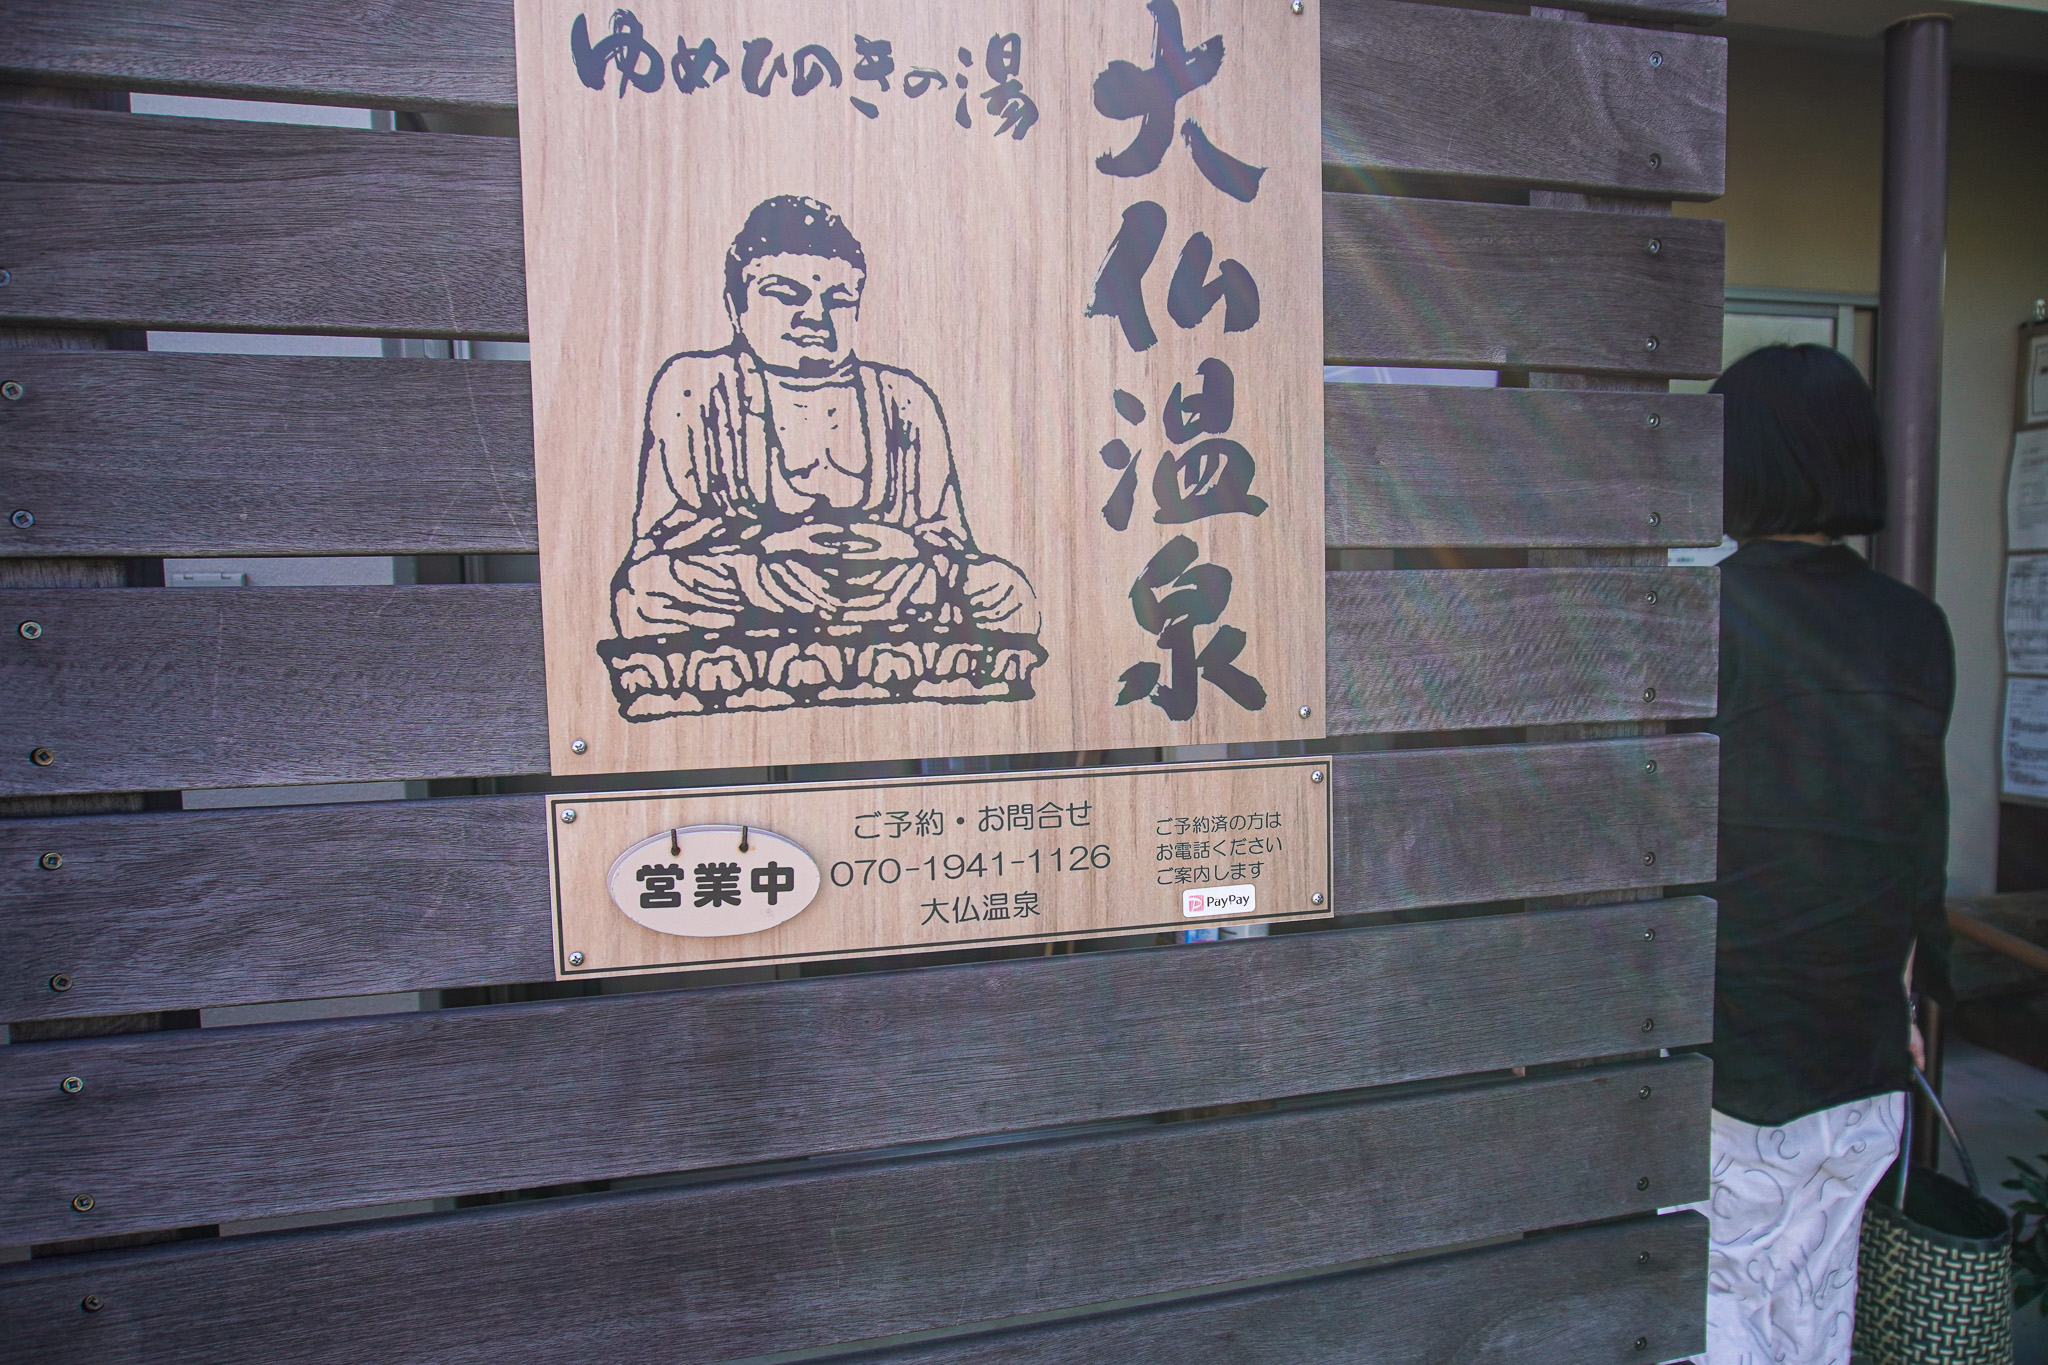 大仏温泉
ゆめひのきの湯
営業中
ご予約・お問合せ
070-1941-1126
大仏温泉
ご予約済の方は
お電話ください
ご案内します
PayPay